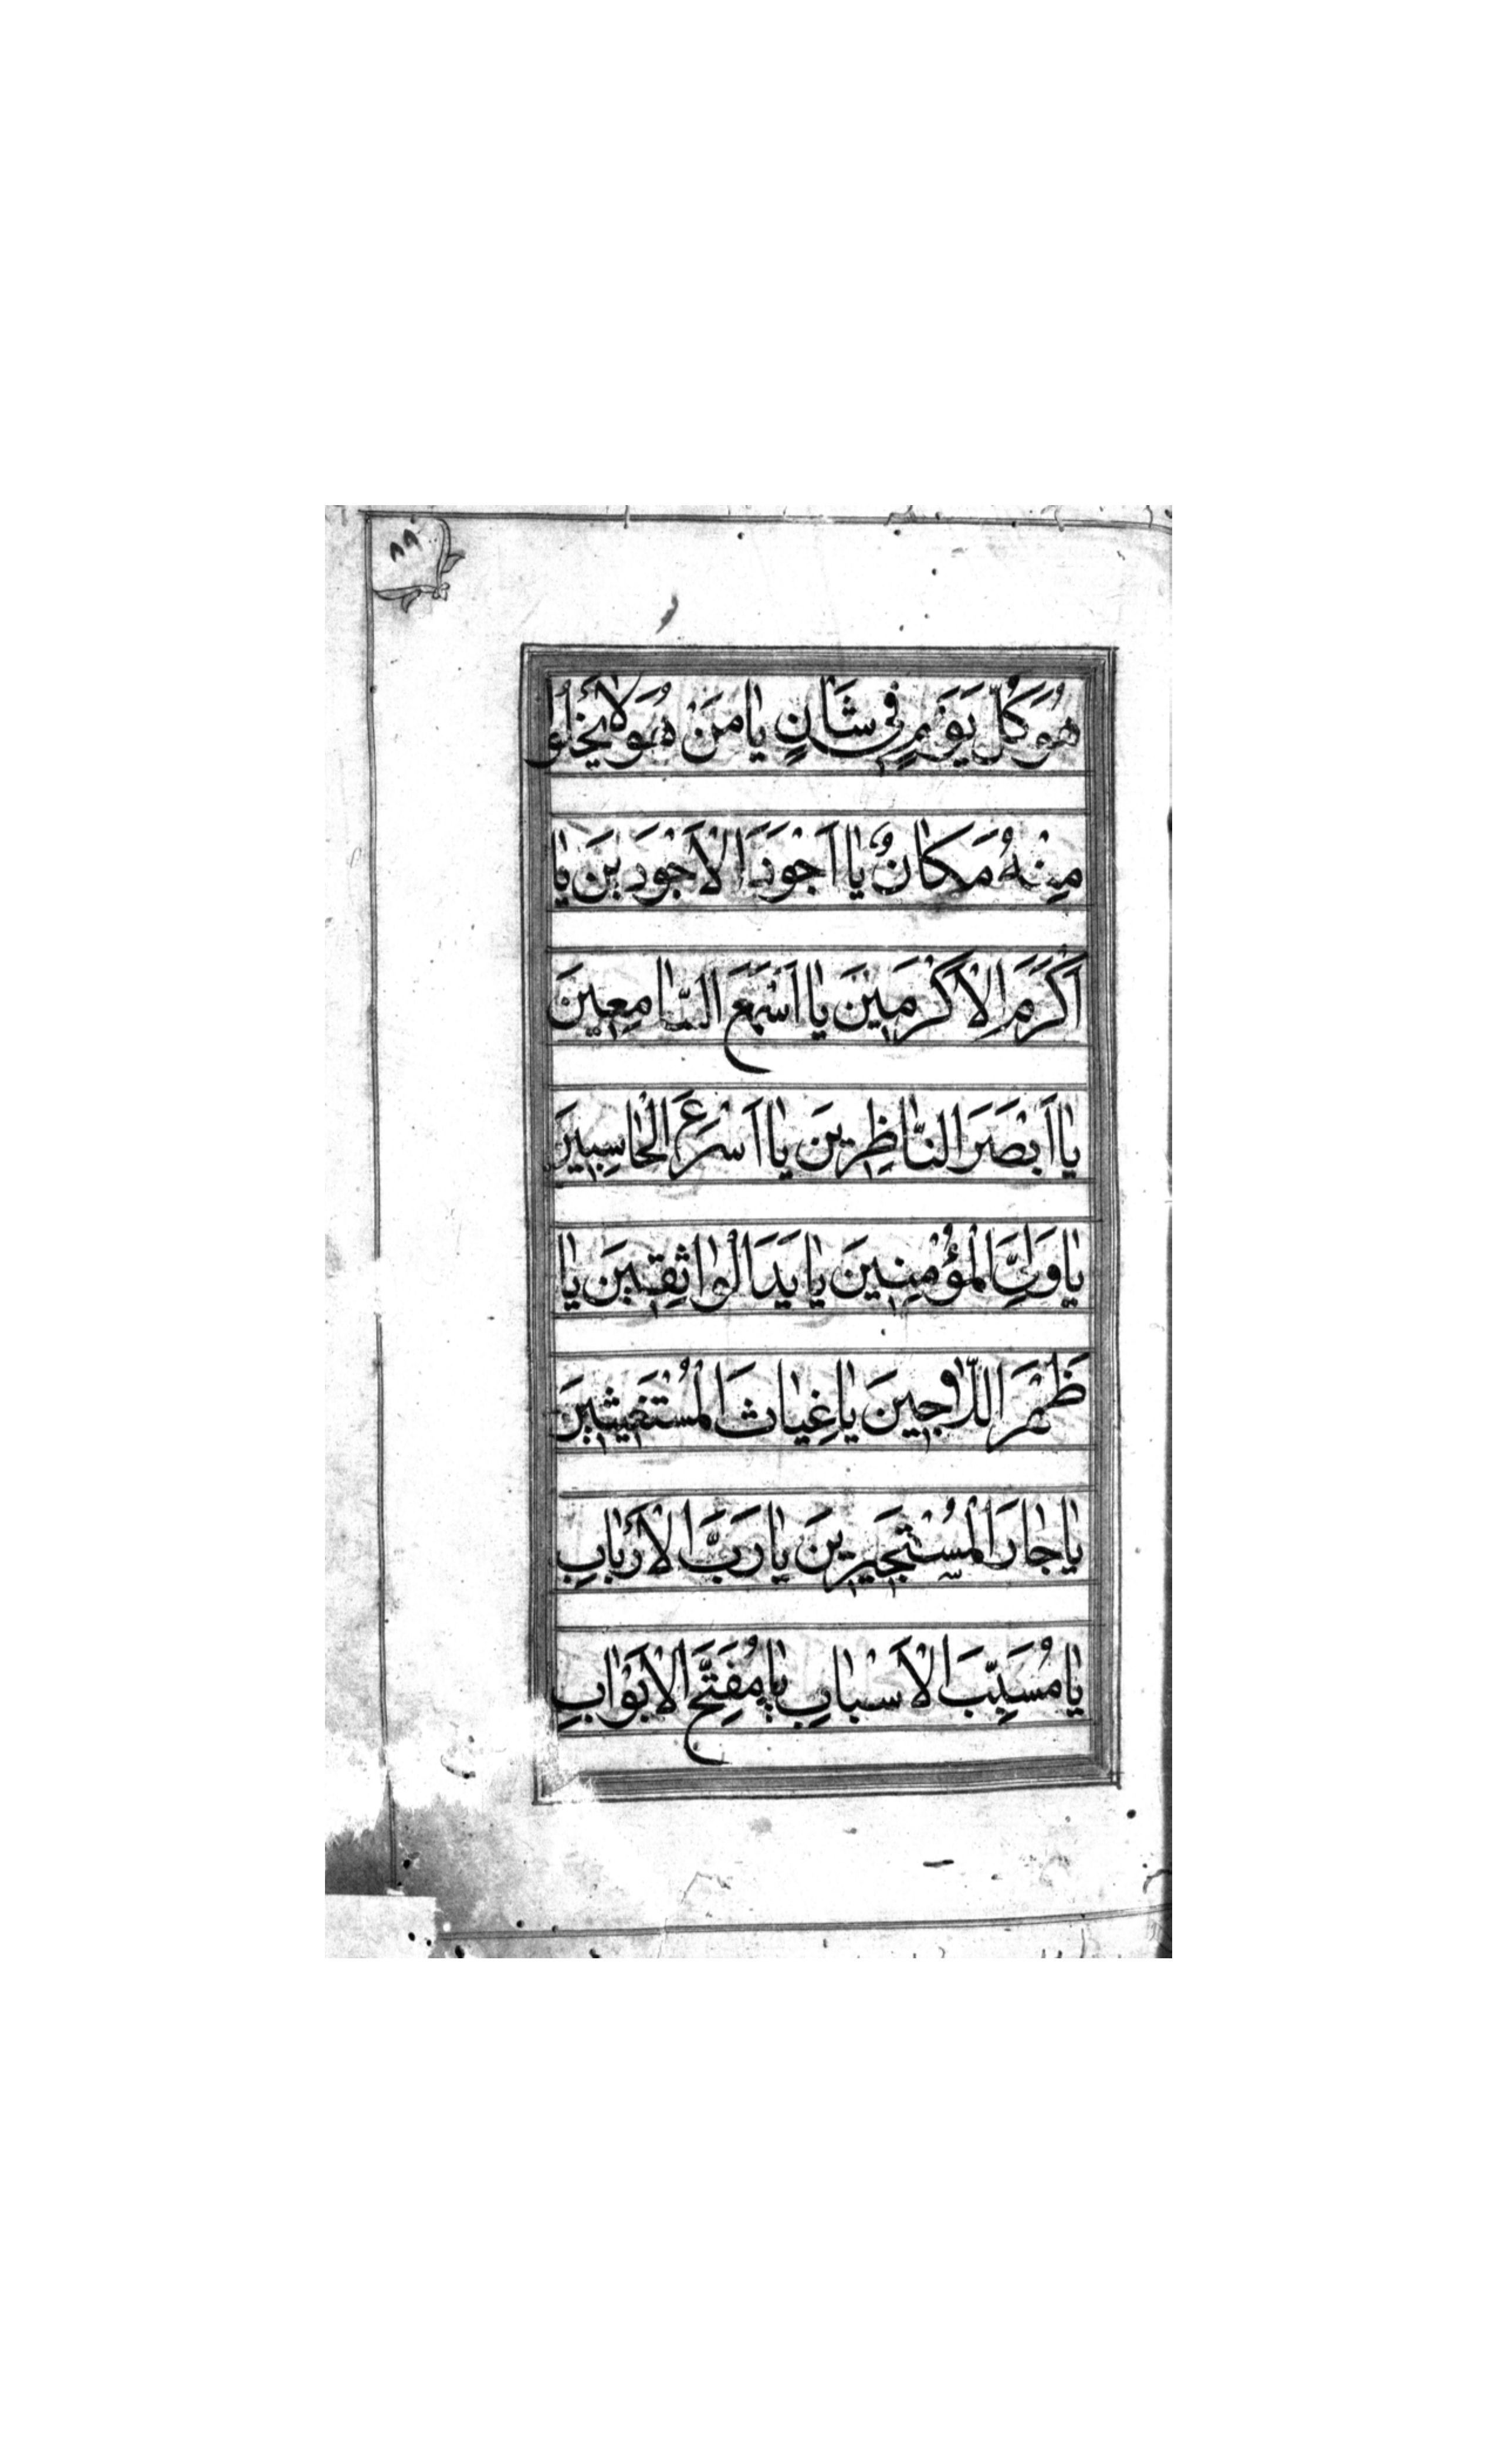 ٨٨
هُوَ كُلَّ يَوْمٍ فِي شَانٍ يٰا مَنْ هُوَ لاٰ يَخْلُو
مِنْهُ مَكٰانٌ يٰا اَجْوَدَ الْاَجْوَدِينَ يٰا
اَكْرَمَ الْاَكْرَمِينَ يٰا اَسْمَعَ السّٰامِعِينَ
يٰا اَبْصَرَ النّٰاظِرِينَ يٰا اَسْرَعَ الْحٰاسِبِينَ
يٰا وَلِيَّ الْمُؤْمِنِينَ يٰا يَدَ الْوٰاثِقِينَ يٰا
ظَهْرَ اللّاٰجِينَ يٰا غِيٰاثَ الْمُسْتَغِيثِينَ
يٰا جٰارَ الْمُسْتَجِيرِينَ يٰا رَبَّ الْاَرْبٰابِ
يٰا مُسَبِّبَ الْاَسْبٰابِ يٰا مُفَتِّحَ الْاَبْوٰابِ